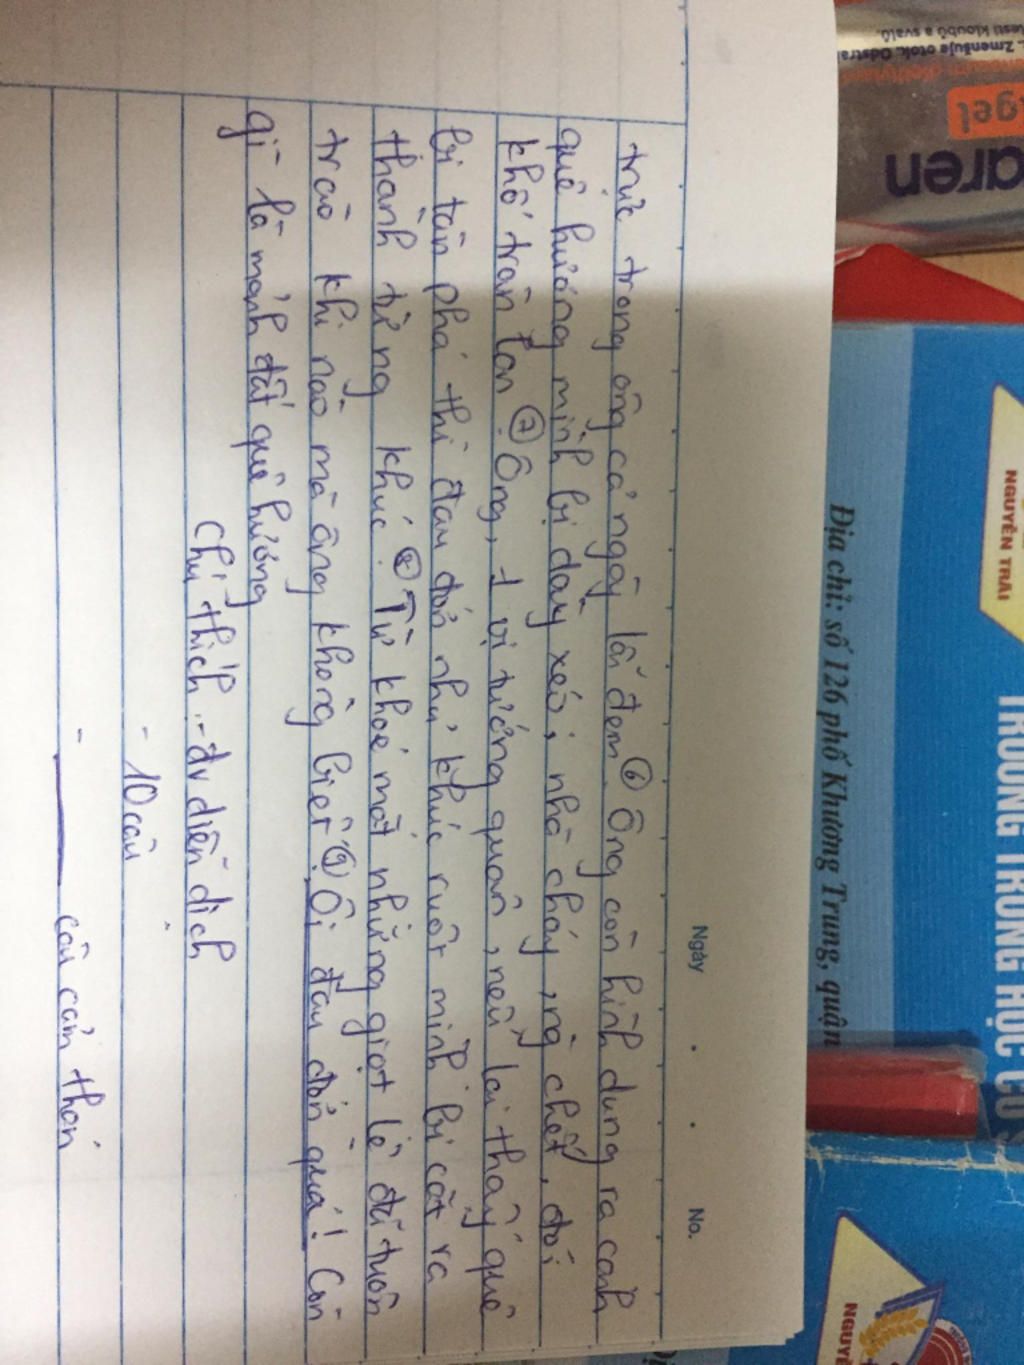 Ngày . . No.
trực trong ông cả ngày lẫn đêm. ⑥ Ông còn hình dung ra cảnh
quê hương mình bị dày xéo; nhà cháy, ng chết, đói
khổ tràn lan. ⑦ Ông, 1 vị tướng quân, nếu lại thấy quê
bị tàn phá thì đau đớn như khúc ruột mình bị cắt ra
thành từng khúc. ⑧ Từ khoé mắt những giọt lệ đã tuôn
trào khi nào mà ông không biết ⑨ Ôi đau đớn quá! Còn
gì là mảnh đất quê hương
Chú thích: - đv diễn dịch
- 10 câu
- câu cảm thán
aren
gel
Zmenšuje otok. Odstra
bolesti kloubů a svalů.
NGUYỄN TRÃI
TRƯỜNG TRUNG HỌC CƠ
Địa chỉ: số 126 phố Khương Trung, quận
NGUYỄ